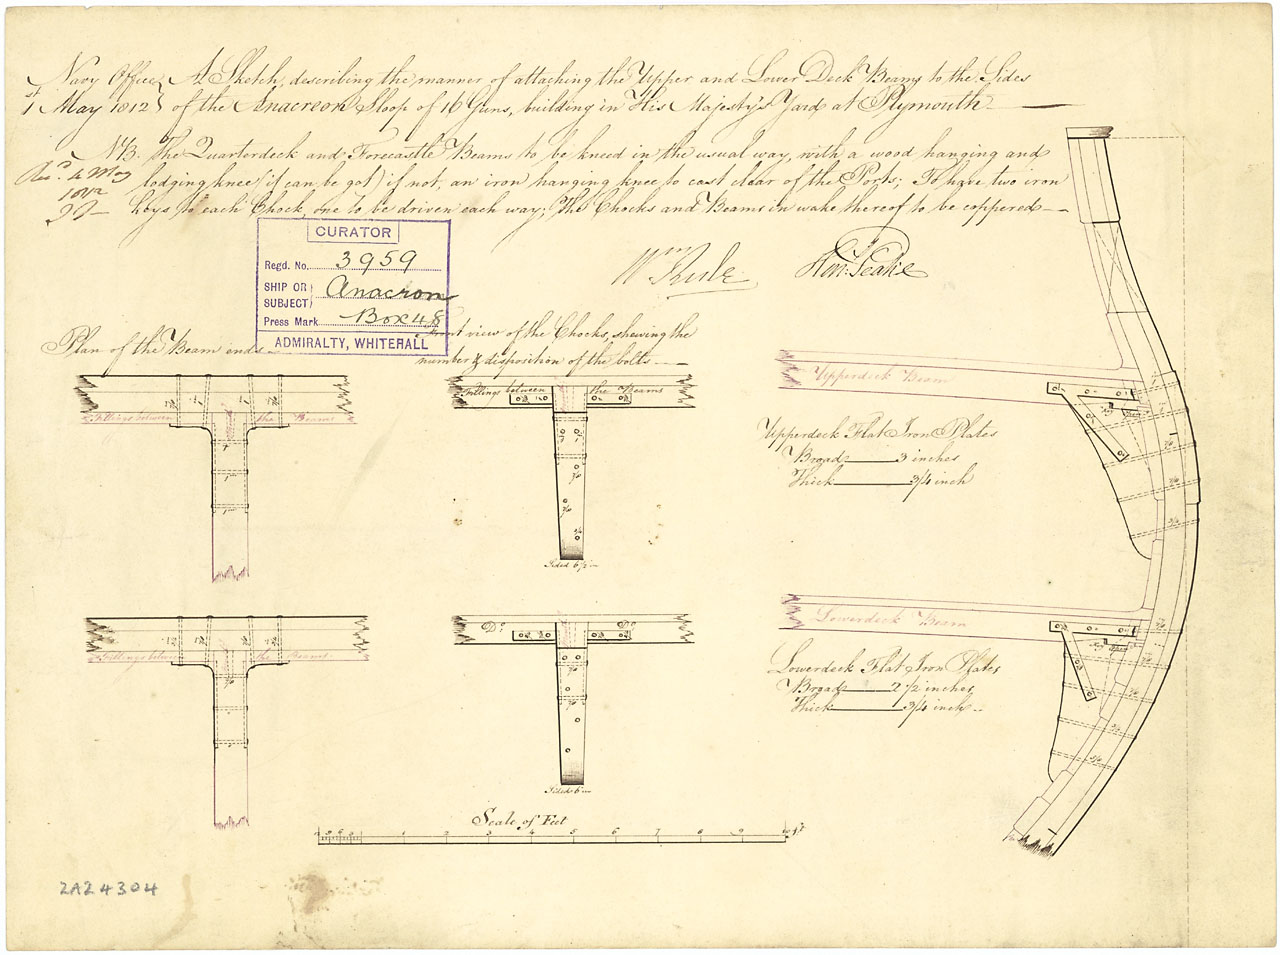 Navy Office A Sketch, describing the manner of attaching the Upper and Lower Deck Beams to the Sides
1st May 1812 of the Anacreon Sloop of 16 Guns, building in His Majesty's Yard at Plymouth
NB. The Quarterdeck and Forecastle Beams to be kneed in the usual way, with a wood hanging and
lodging knee (if can be got) if not, an iron hanging knee to cast clear of the Ports. To have two iron
keys to each Chock, one to be driven each way; The Chocks and Beams in wake thereof to be coppered
Recd. 4 May
1812
Wm Rule
Hen: Peake
CURATOR
Regd. No. 3959
SHIP OR SUBJECT Anacreon
Press Mark Box 48
ADMIRALTY, WHITEHALL
Plan of the Beam ends
Front view of the Chocks, shewing the
number & disposition of the bolts
Fillings between the Beams
Fillings between the Beams
Sided 6 1/2 in
Upperdeck Beam
Upperdeck Flat Iron Plates
Broad 3 inches
Thick 3/4 inch
Fillings between the Beams
Do. Do.
Sided 6 in
Lowerdeck Beam
Lowerdeck Flat Iron Plates
Broad 2 1/2 inches
Thick 3/4 inch
Scale of Feet
1 2 3 4 5 6 7 8 9 10 ft
2A24304